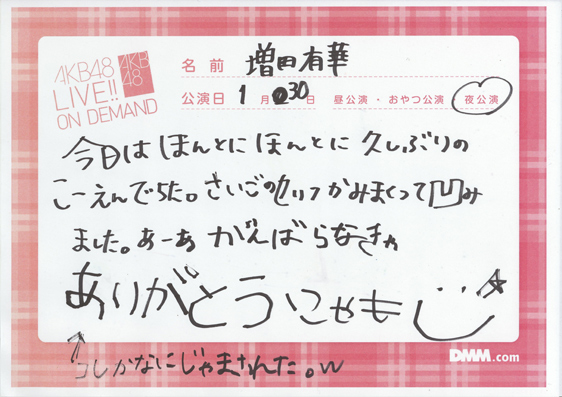 AKB48
LIVE!!
ON DEMAND
AKB
48
名前 増田有華
公演日 1月30日 昼公演・おやつ公演 夜公演
今日は ほんとに ほんとに 久しぶりの
こーえんでした。さいごのセリフかみまくって凹み
ました。あーあ がんばらなきゃ
ありがとうにゃも
コレかなにじゃまされた。w
DMM.com